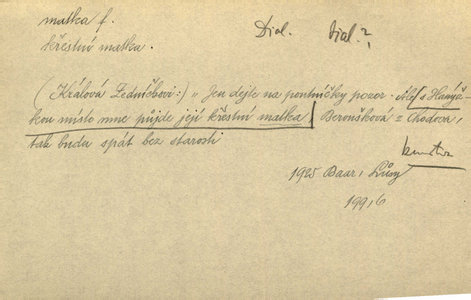 matka f.
křestní matka.
Dial. Dial.?
(Králová Zedníčkovi:) „ Jen dejte na pantničky pozor. Ale s Hanýž-
kou místo mne přijde její křestní matka Beroušková z Chodova,
tak budu spát bez starosti
1925 Baar, Lůsy
199,6